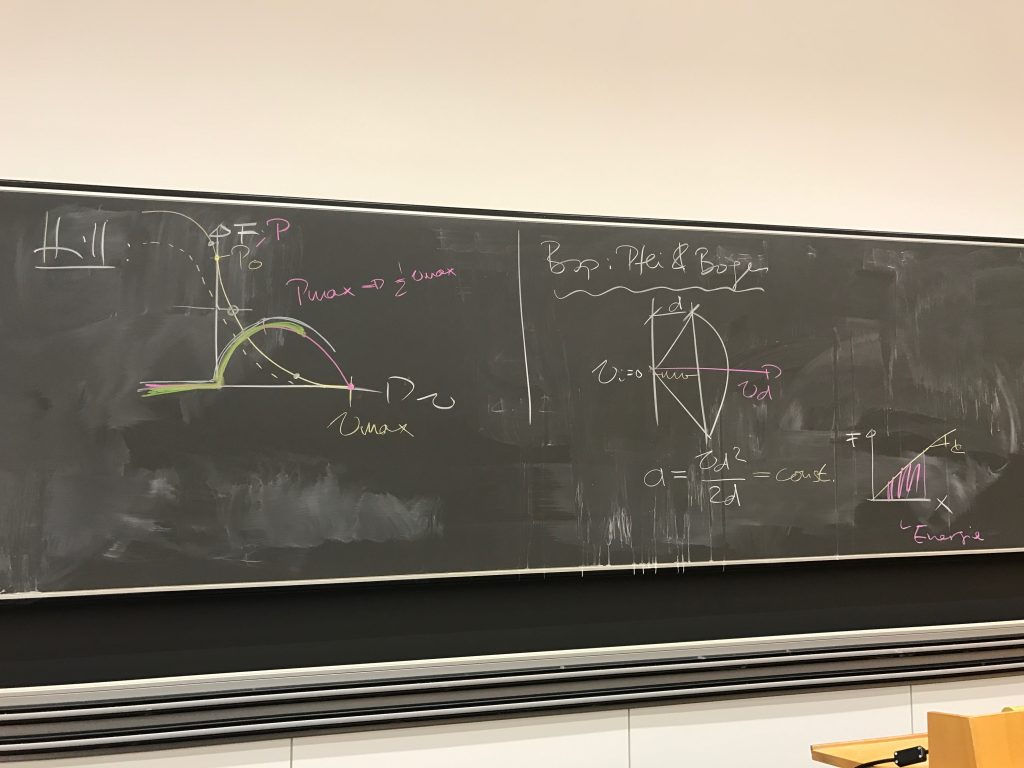 Hill
F, P
P0
Pmax → 1/2 vmax
v
vmax
Bsp: Pfeil & Bogen
d
vi=0
vd
a = vd²/2d = const.
F
x
Energie